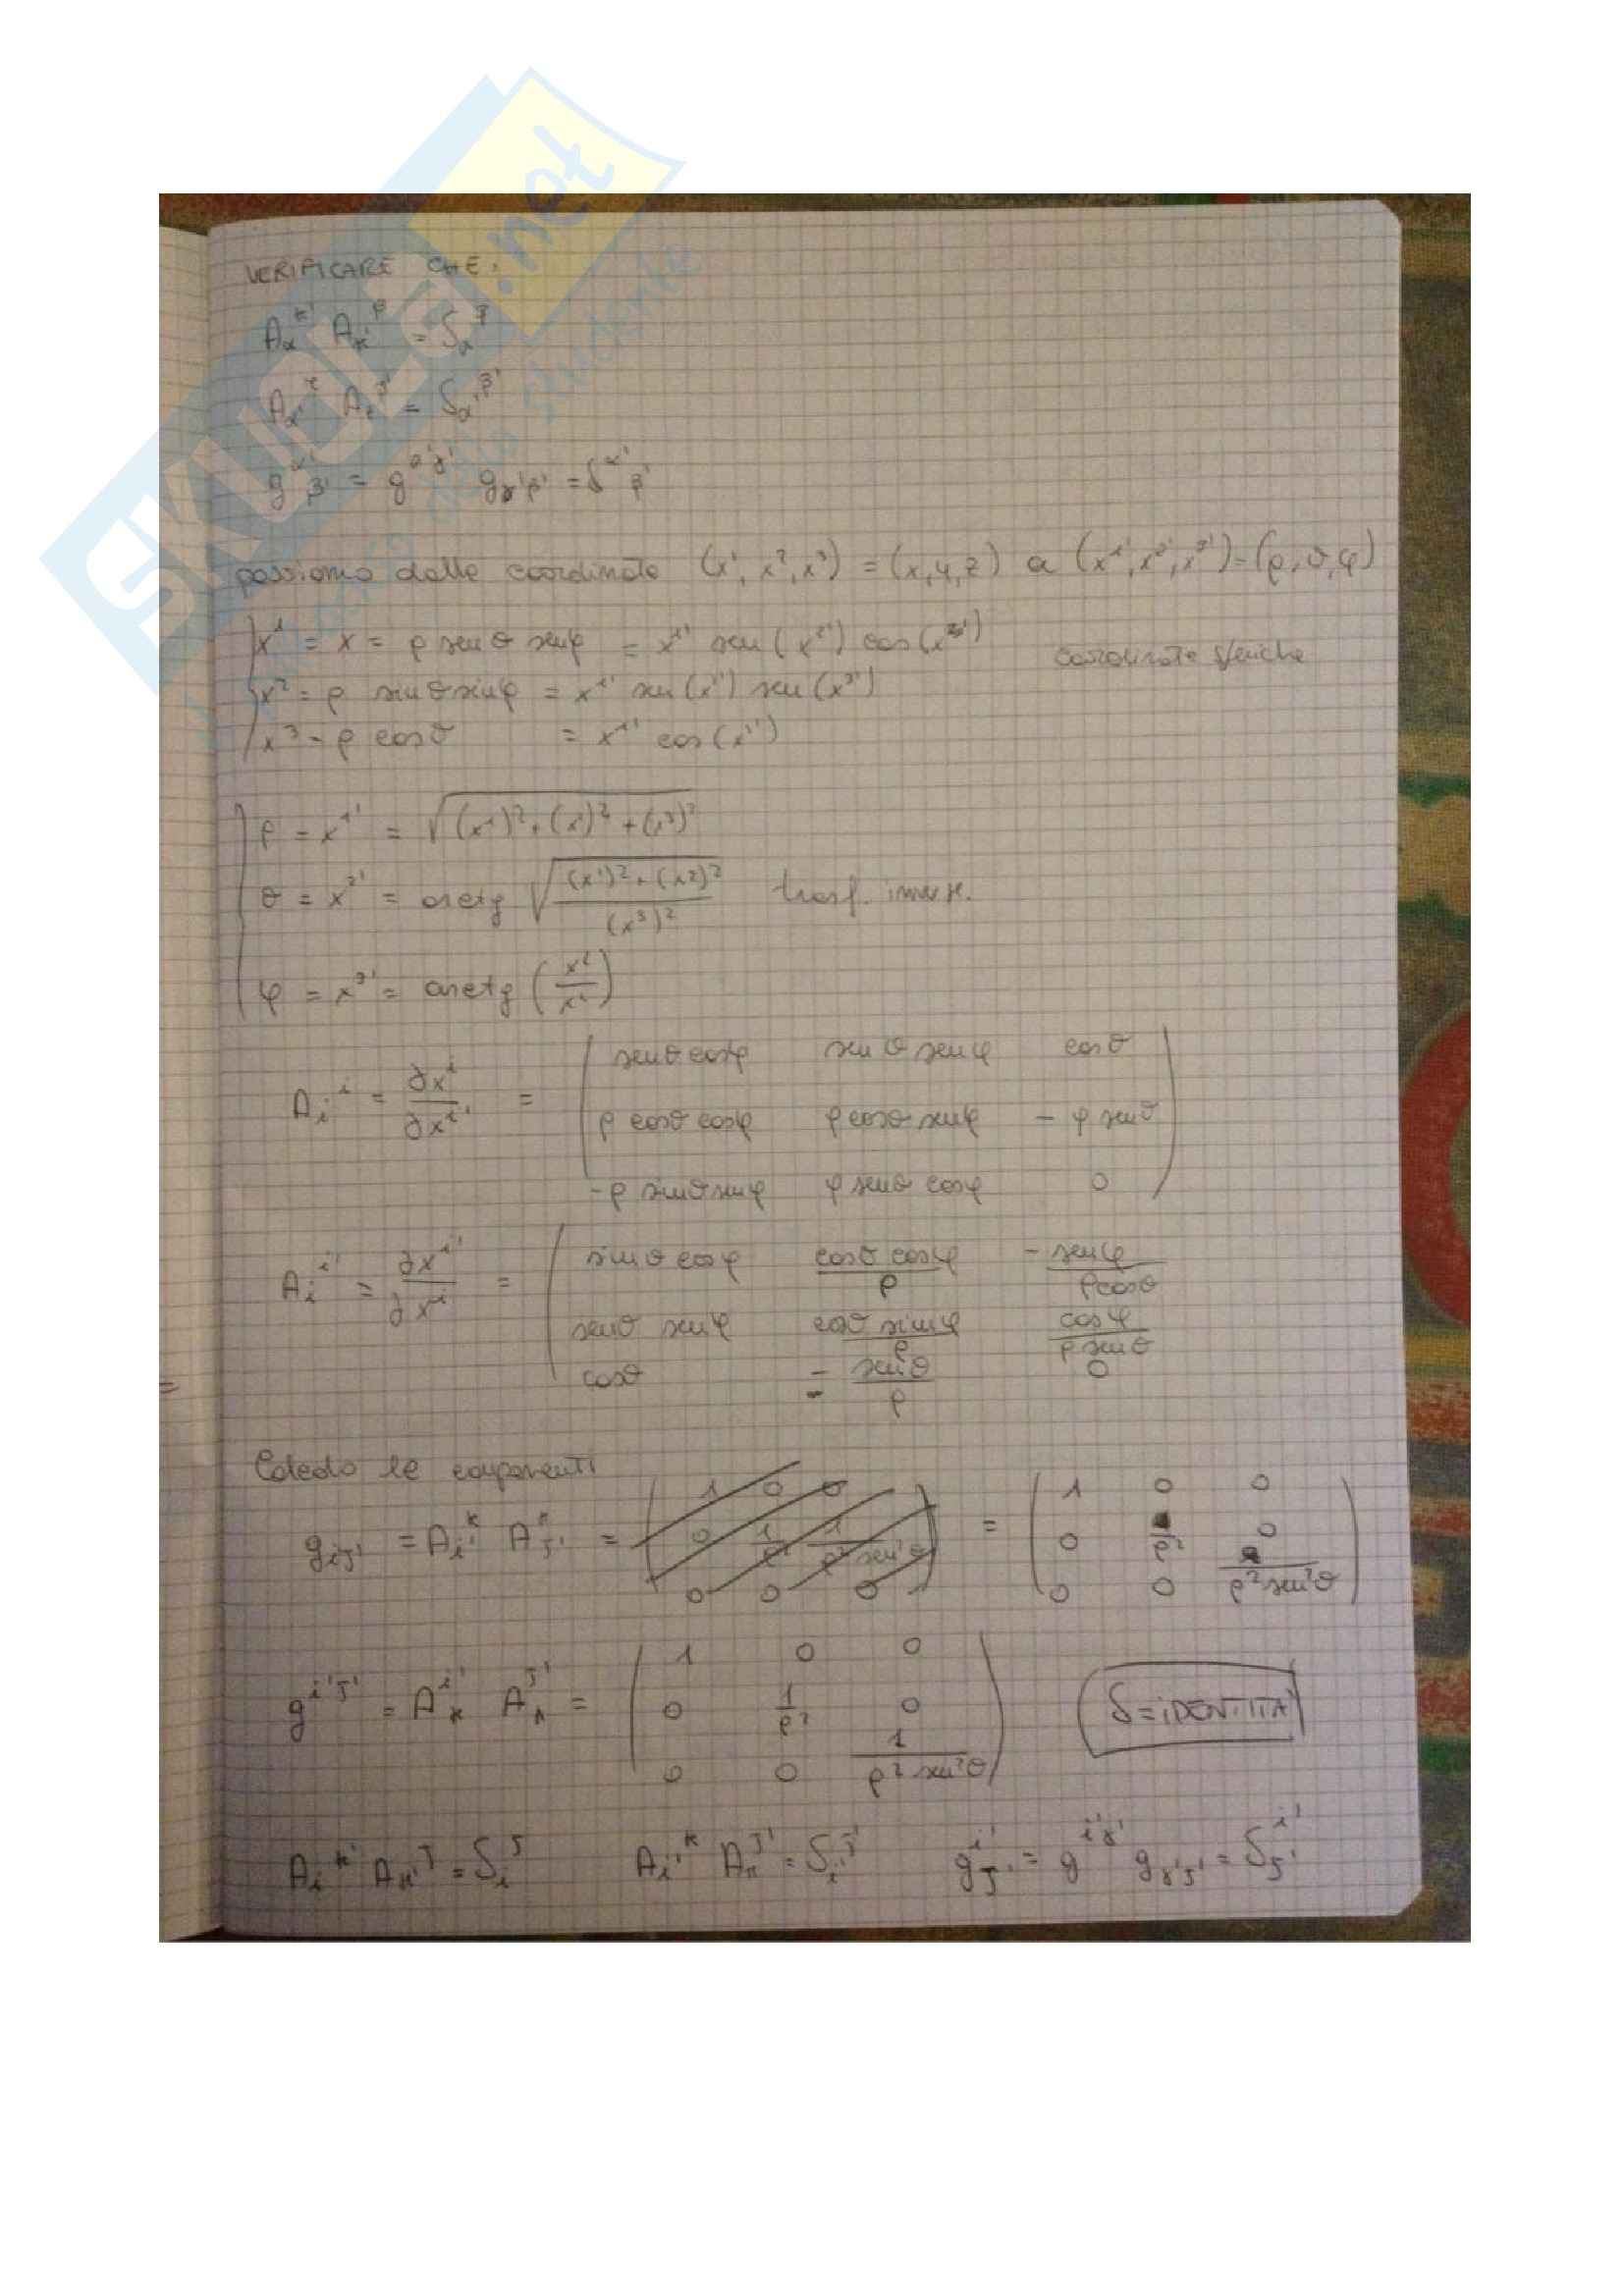 SKUOLA.net
VERIFICARE CHE:
A_α^{κ'} A_{κ'}^β = δ_α^β
A_{α'}^τ A_τ^{β'} = δ_{α'}^{β'}
g^{α'}_{β'} = g^{α'γ'} g_{γ'β'} = δ^{α'}_{β'}
passiamo dalle coordinate (x^1, x^2, x^3) = (x, y, z) a (x^{1'}, x^{2'}, x^{3'}) = (ρ, θ, φ)
x^1 = x = ρ senθ senφ = x^{1'} sen(x^{2'}) cos(x^{3'})
coordinate sferiche
x^2 = ρ sinθ sinφ = x^{1'} sen(x^{2'}) sen(x^{3'})
x^3 = ρ cosθ = x^{1'} cos(x^{2'})
ρ = x^{1'} = √((x^1)^2 + (x^2)^2 + (x^3)^2)
θ = x^{2'} = arctg √(((x^1)^2 + (x^2)^2) / (x^3)^2) trasf. inverse.
φ = x^{3'} = arctg (x^2 / x^1)
A_{i'}^i = ∂x^i / ∂x^{i'} =
senθ cosφ senθ senφ cosθ
ρ cosθ cosφ ρ cosθ senφ - ρ senθ
-ρ sinθ senφ ρ senθ cosφ 0
A_i^{i'} = ∂x^{i'} / ∂x^i =
sinθ cosφ cosθ cosφ / ρ - senφ / ρ cosθ
senθ senφ cosθ sinφ / ρ cosφ / ρ senθ
cosθ - senθ / ρ 0
Calcolo le componenti
g_{i'j'} = A_{i'}^k A_{j'}^k =
1 0 0
0 1/ρ^2 1/ρ^2 sen^2θ
0 0 0
=
1 0 0
0 ρ^2 0
0 0 ρ^2 sen^2θ
g^{i'j'} = A_k^{i'} A_k^{j'} =
1 0 0
0 1/ρ^2 0
0 0 1/ρ^2 sen^2θ
δ = IDENTITA'
A_i^{k'} A_{k'}^j = δ_i^j A_{i'}^k A_k^{j'} = δ_{i'}^{j'} g^{i'}_{j'} = g^{i'γ'} g_{γ'j'} = δ^{i'}_{j'}